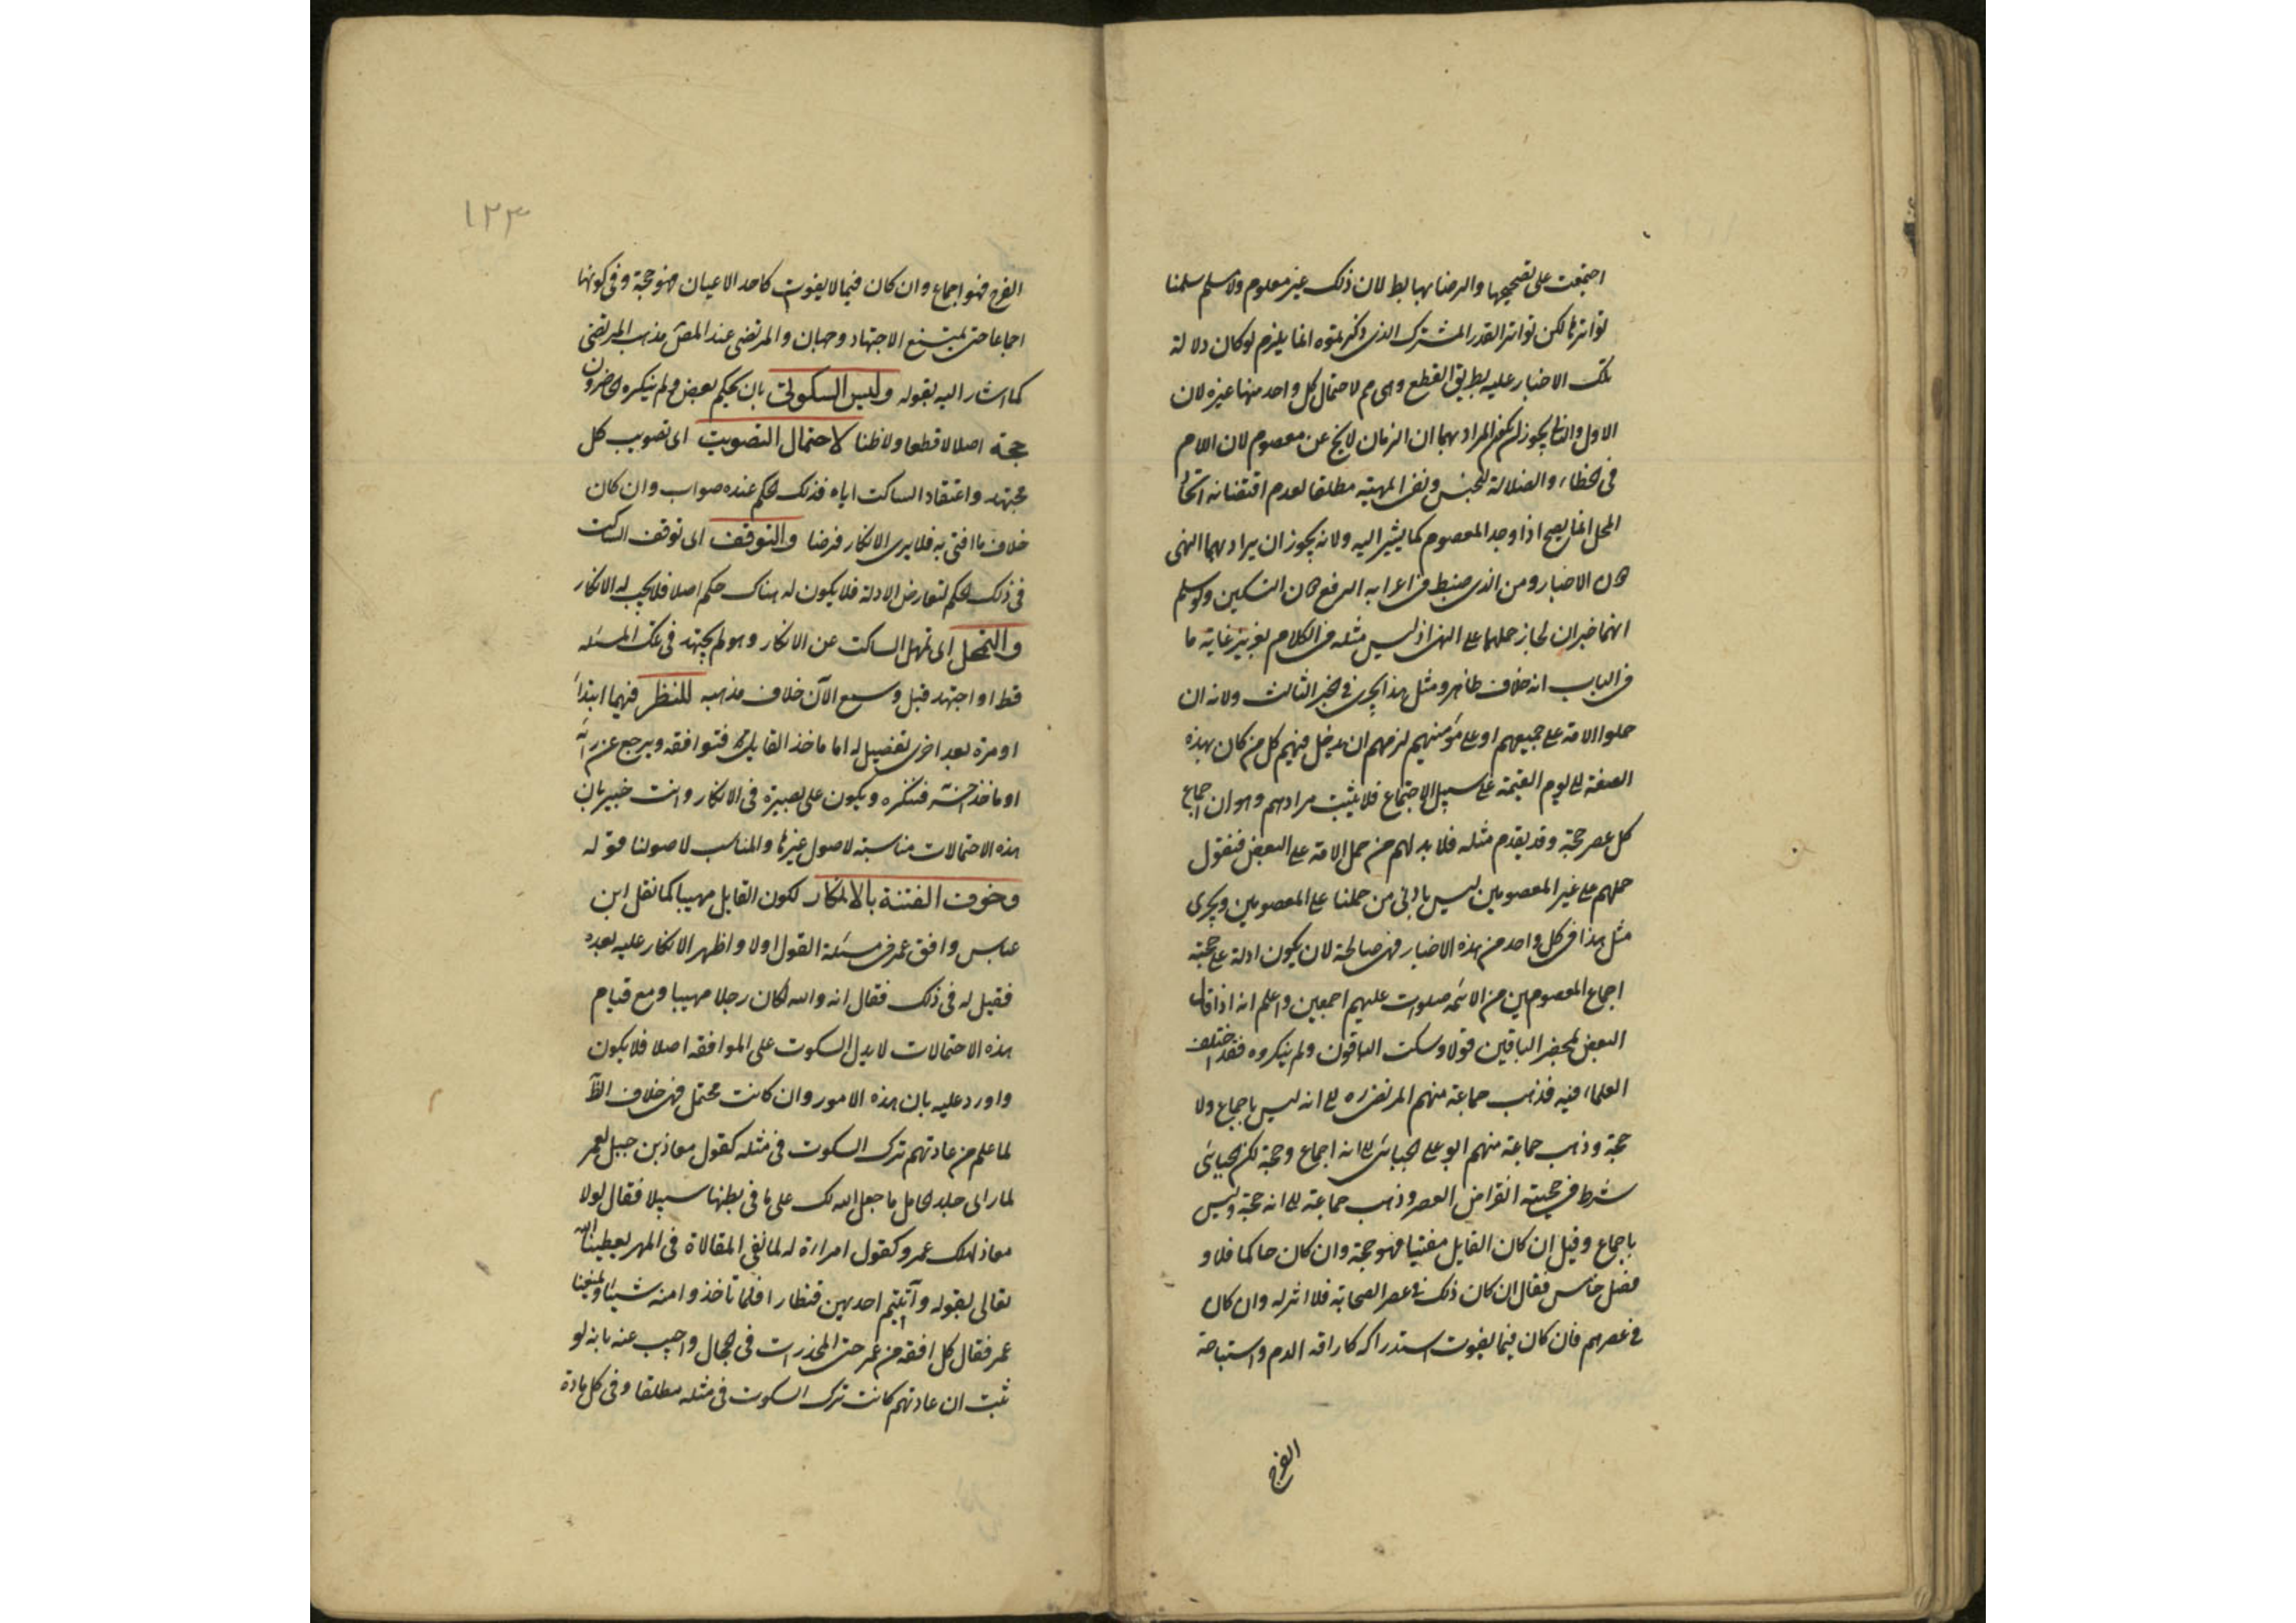 اجتمعت على تصحيحها والرضا بها بط لان ذلك غير معلوم ولا مسلم سلمنا
تواترها لكن تواتر القدر المشترك الذى ذكرتموه انما يلزم لو كان دلالة
تلك الاخبار عليه بطريق القطع وهى م لاحتمال كل واحد منها غيره لان
الاول والثانى يجوز ان يكون المراد بهما ان الزمان لا يخ عن معصوم لان اللام
فى الخطاء والضلالة للجنس ونفى المهية مطلقا لعدم اقتضائه اتحاد
المحل انما يصح اذا وجد المعصوم كما يشير اليه ولانه يجوز ان يراد بهما النهى
الاخبار ومن الذى ضبط فى اعرابه الرفع التسكين ولو سلم
انهما خبران لجاز حملهما على النهى اذ ليس مثله فى الكلام بغريز غاية ما
فى الباب انه خلاف ظاهر ومثل هذا يجرى فى الخبر الثالث ولانه ان
حملوا الامة على جميعهم او على مؤمنيهم لزمهم ان يدخل فيهم كل من كان بهذه
الصفة الى يوم القيمة على سبيل الاجتماع فلا يثبت مرادهم وهو ان اجماع
كل عصر حجة وقد يقدم مثله فلا بد لهم من حمل الامة على البعض فنقول
حملهم على غير المعصومين ليس باولى من حملنا على المعصومين ويجرى
مثل هذا فى كل واحد من هذه الاخبار فهى صالحة لان يكون ادلة على حجية
اجماع المعصومين من الائمه صلوات عليهم اجمعين واعلم انه اذا قال
البعض بمحضر الباقين قولا وسكت الباقون ولم ينكروه فقد اختلف
العلماء فيه فذهب جماعة منهم المرتضى ره الى انه ليس باجماع ولا
حجة وذهب جماعة منهم ابو على الجبائى الى انه اجماع وحجة لكن الجبائى
شرط فى حجيته انقراض العصر وذهب جماعة الى انه حجة وليس
باجماع وقيل ان كان القايل مفتيا فهو حجة وان كان حاكما فلا و
فصل خامس فقال ان كان ذلك فى عصر الصحابة فلا اثر له وان كان
فى عصرهم فان كان فيما يفوت استدراكه كاراقه الدم واستباحة
الفرج
١٢٣
الفرج فهو اجماع وان كان فيما لا يفوت كاحد الاعيان فهو حجة وفى كونها
اجماعا حتى يمتنع الاجتهاد وجهان والمرتضى عند المص مذهب المرتضى
كما اشار اليه بقوله وليس السكوتى بان يحكم بعض ولم ينكره الحاضرون
حجة اصلا لا قطعا ولا ظنا لاحتمال التصويب اى تصويب كل
مجتهد واعتقاد الساكت اياه فذلك الحكم عنده صواب وان كان
خلاف ما افتى به فلا يرى الانكار فرضا والتوقف اى توقف الساكت
فى ذلك الحكم لتعارض الادلة فلا يكون له هناك حكم اصلا فلا يجب له الانكار
والتمهل اى تمهل الساكت عن الانكار وهو لم يجتهد فى تلك المسئله
قط او اجتهد قبل وسمع الآن خلاف مذهبه للنظر فيهما ابتداءً
او مرة بعد اخرى تفضيل له اما ماخذ القايل فتوافقه ويرجع عن رأيه
او ماخذ فينكره ويكون على بصيرة فى الانكار وانت خبير بان
هذه الاحتمالات مناسبة لاصول غيرنا والمناسب لاصولنا قوله
وخوف الفتنة بالانكار لكون القايل مهيبا كما نقل ابن
عباس وافق عمر فى مسئلة القول اولا واظهر الانكار عليه بعده
فقيل له فى ذلك فقال انه والله لكان رجلا مهيبا ومع قيام
هذه الاحتمالات لا يدل السكوت على الموافقه اصلا فلا يكون
واورد عليه بان هذه الامور وان كانت محتمل فهى خلاف الظا
لما علم من عادتهم ترك السكوت فى مثله كقول معاذ بن جبل لعمر
لما راى جلد الحامل ما جعل الله لك على ما فى بطنها سبيلا فقال لولا
معاذ لهلك عمر وكقول امرارة له لما نفى المقالاة فى المهر يعطينا الله
تعالى بقوله وآتيتم احديهن قنطارا فلما تأخذوا منه شيئا ويمنعنا
عمر فقال كل افقه من عمر حتى المخدرات فى الحجال واجيب عنه بانه لو
ثبت ان عادتهم كانت ترك السكوت فى مثله مطلقا وفى كل مادة